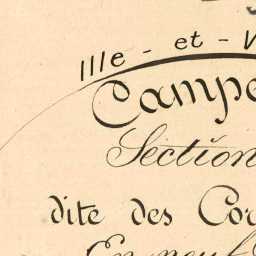 Ille - et - V
Campe
Section
dite des Cor
En neuf